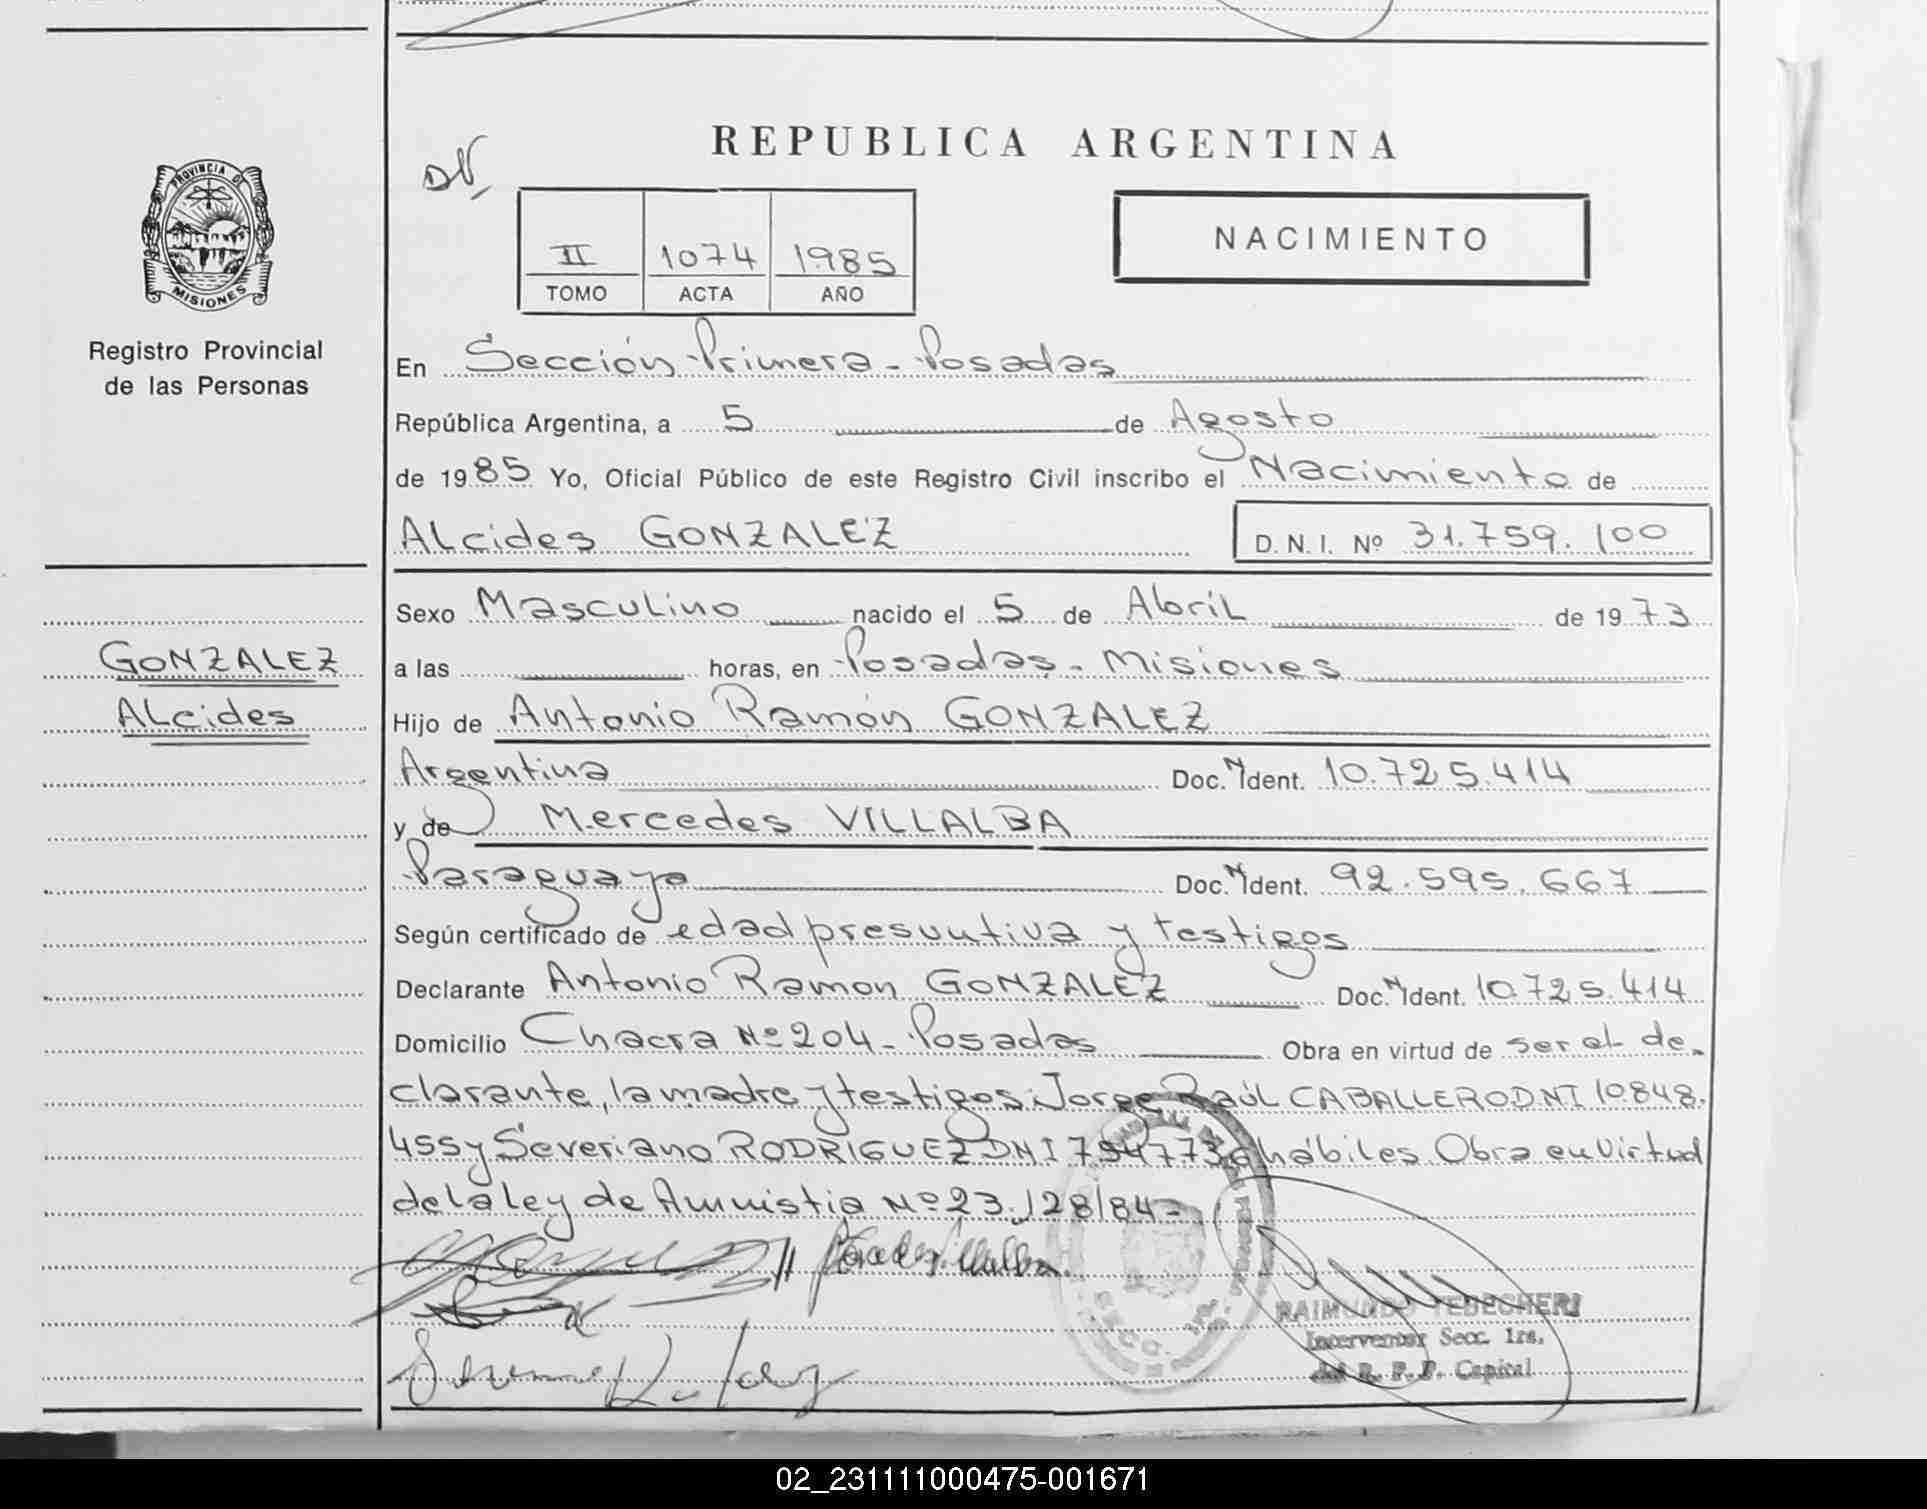 REPUBLICA ARGENTINA
PROVINCIA DE
MISIONES
Registro Provincial
de las Personas
II 1074 1985
TOMO ACTA AÑO
NACIMIENTO
En Sección Primera - Posadas
República Argentina, a 5 de Agosto
de 1985 Yo, Oficial Público de este Registro Civil inscribo el Nacimiento de
Alcides GONZALEZ D.N.I. Nº 31.759.100
Sexo Masculino nacido el 5 de Abril de 1973
GONZALEZ
Alcides
a las horas, en Posadas - Misiones
Hijo de Antonio Ramón GONZALEZ
Argentina Doc. N Ident. 10.725.414
y de Mercedes VILLALBA
Paraguaya Doc. N Ident. 92.595.667
Según certificado de edad presuntiva y testigos
Declarante Antonio Ramon GONZALEZ Doc. N Ident. 10.725.414
Domicilio Chacra Nº 204 - Posadas Obra en virtud de ser el de-
clarante, la madre y testigos: Jorge Raúl CABALLERO DNI 10848.
455 y Severiano RODRIGUEZ DNI hábiles. Obra en virtud
de la ley de Amnistia Nº 23.128/84-
RAIMUNDO TEBECHERI
Interventor Secc. 1ra.
R. P. P. Capital
02_231111000475-001671